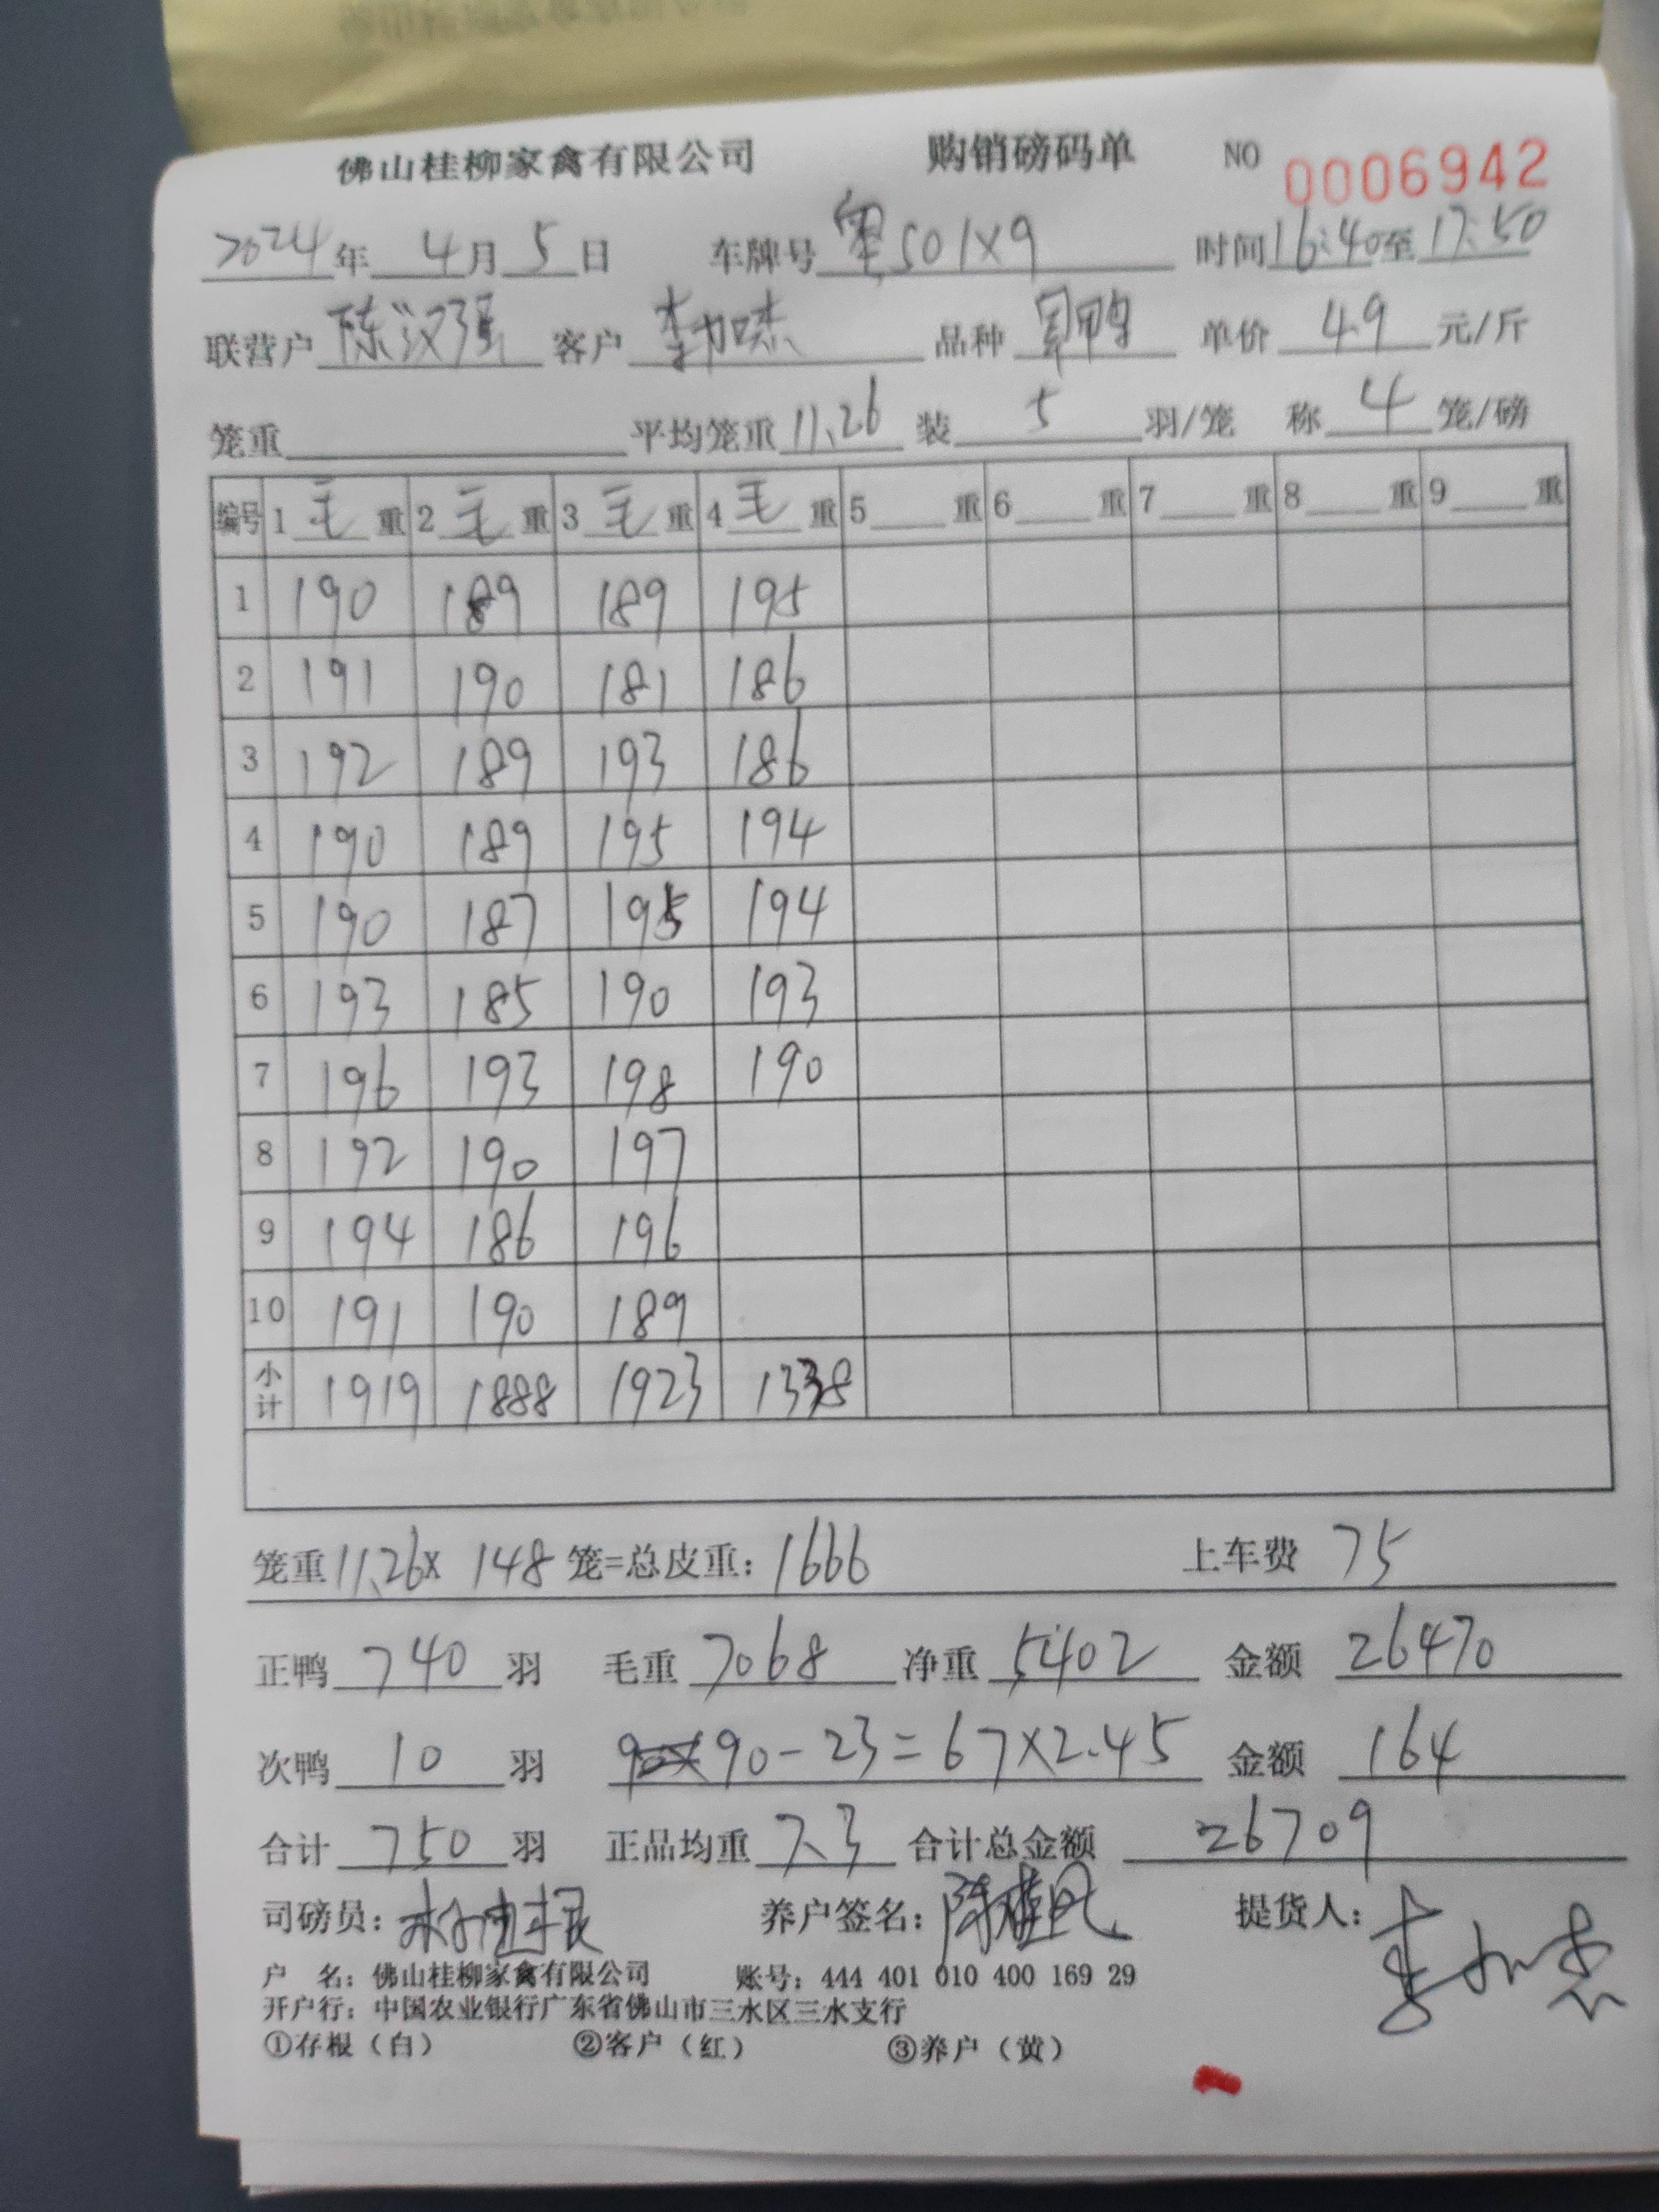 佛山桂柳家禽有限公司 购销磅码单 NO 0006942
2024年 4月 5日 车牌号 粤S01X9 时间 16:40至17:50
联营户 陈汉强 客户 李加杰 品种 鸭 单价 4.9 元/斤
笼重 平均笼重 11.26 装 5 羽/笼 称 4 笼/磅
编号 1 毛 重 2 毛 重 3 毛 重 4 毛 重 5 重 6 重 7 重 8 重 9 重
1 190 189 189 195
2 191 190 181 186
3 192 189 193 186
4 190 189 195 194
5 190 187 195 194
6 193 185 190 193
7 196 193 198 190
8 192 190 197
9 194 186 196
10 191 190 189
小计 1919 1888 1923 1338
笼重 11.26 x 148 笼=总皮重: 1666 上车费 75
正鸭 740 羽 毛重 7068 净重 5402 金额 26470
次鸭 10 羽 90-23=67×2.45 金额 164
合计 750 羽 正品均重 7.3 合计总金额 26709
司磅员: 养户签名: 陈 提货人: 李加杰
户 名: 佛山桂柳家禽有限公司 账号: 444 401 010 400 169 29
开户行: 中国农业银行广东省佛山市三水区三水支行
①存根（白） ②客户（红） ③养户（黄）